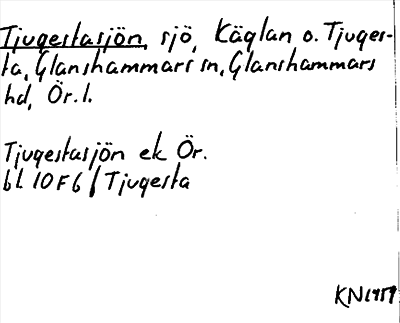 Tjugestasjön, sjö, Käglan o. Tjuges-
ta, Glanshammars sn, Glanshammars
hd, Ör. l.
Tjugestasjön ek Ör.
bl. 10 F 6 / Tjugesta